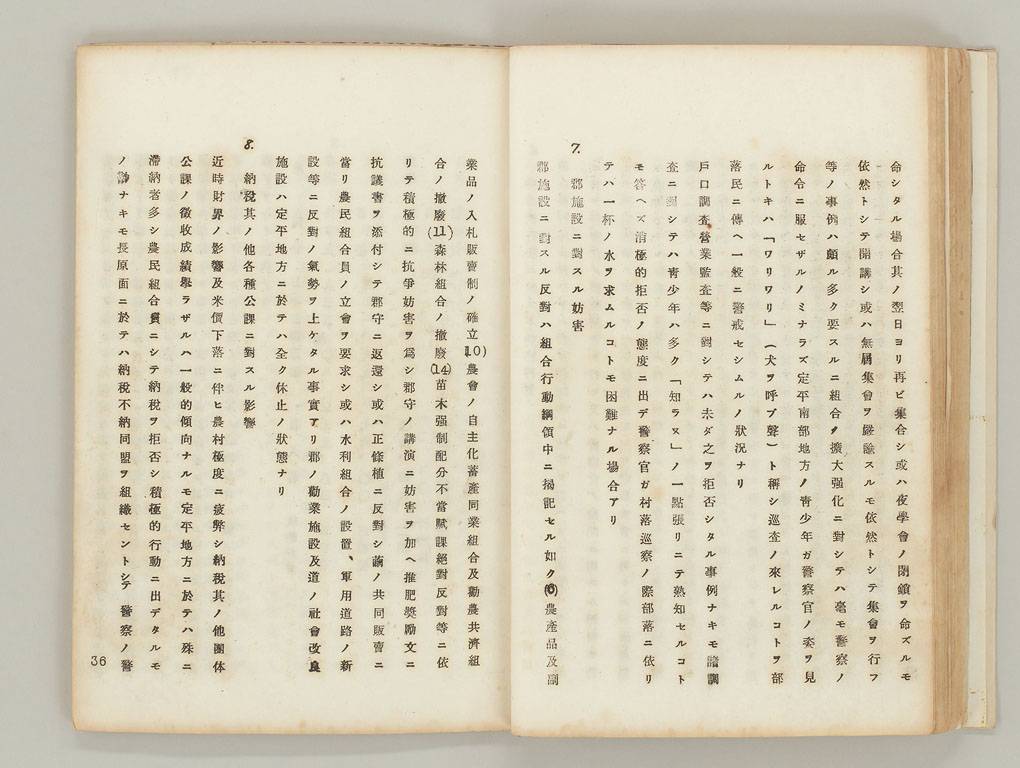 命シタル場合其ノ翌日ヨリ再ビ集合シ或ハ夜學會ノ閉鎖ヲ命ズルモ
依然トシテ開講シ或ハ無屆集會ヲ嚴諭スルモ依然トシテ集會ヲ行フ
等ノ事例ハ頗ル多ク要スルニ組合ノ擴大强化ニ對シテハ毫モ警察ノ
命令ニ服セザルノミナラズ定平南部地方ノ靑少年ガ警察官ノ姿ヲ見
ルトキハ「ワリワリ」(犬ヲ呼ブ聲)ト稱シ巡査ノ來レルコトヲ部
落民ニ傳ヘ一般ニ警戒セシムルノ狀況ナリ
戶口調査營業監査等ニ對シテハ未ダ之ヲ拒否シタル事例ナキモ諸調
査ニ對シテハ靑少年ハ多ク「知ラヌ」ノ一點張リニテ熟知セルコト
モ答ヘズ消極的拒否ノ態度ニ出デ警察官ガ村落巡察ノ際部落ニ依リ
テハ一杯ノ水ヲ求ムルコトモ困難ナル場合アリ
7. 郡施設ニ對スル妨害
郡施設ニ對スル反對ハ組合行動綱領中ニ揭記セル如ク(6)農產品及副
業品ノ入札販賣制ノ確立(10)農會ノ自主化蓄產同業組合及勸農共濟組
合ノ撤廢(11)森林組合ノ撤廢(14)苗木强制配分不當賦課絕對反對等ニ依
リテ積極的ニ抗爭妨害ヲ爲シ郡守ノ講演ニ妨害ヲ加ヘ推肥奬勵文ニ
抗議書ヲ添付シテ郡守ニ返還シ或ハ正條植ニ反對シ繭ノ共同販賣ニ
當リ農民組合員ノ立會ヲ要求シ或ハ水利組合ノ設置、軍用道路ノ新
設等ニ反對ノ氣勢ヲ上ケタル事實アリ郡ノ勸業施設及道ノ社會改良
施設ハ定平地方ニ於テハ全ク休止ノ狀態ナリ
8. 納稅其ノ他各種公課ニ對スル影響
近時財界ノ影響及米價下落ニ伴ヒ農村極度ニ疲弊シ納稅其ノ他團体
公課ノ徵收成績擧ラザルハ一般的傾向ナルモ定平地方ニ於テハ殊ニ
滯納者多シ農民組合員ニシテ納稅ヲ拒否シ積極的行動ニ出デタルモ
ノ尠ナキモ長原面ニ於テハ納稅不納同盟ヲ組織セントシテ警察ノ警
36